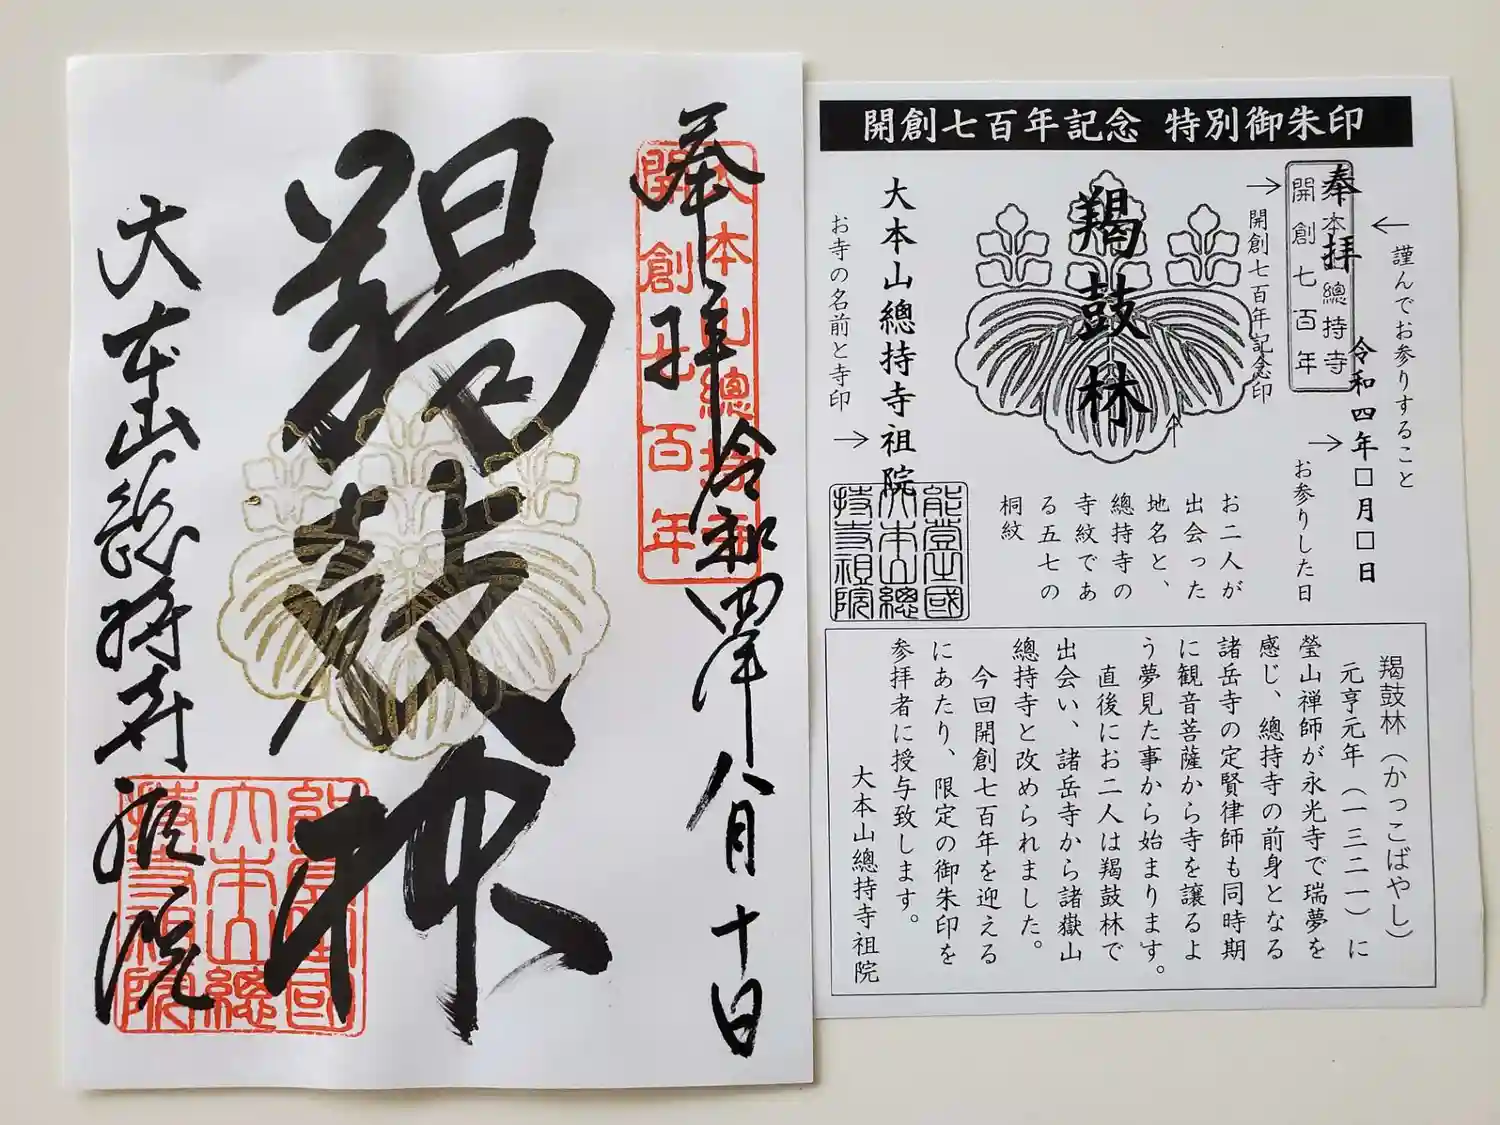 奉拝
大本山總持寺
開創七百年
令和四年八月十日
羯鼓林
大本山総持寺祖院
能登國
大本山總
持寺祖院
開創七百年記念 特別御朱印
謹んでお参りすること
奉拝
大本山總持寺
開創七百年
令和四年□月□日
お参りした日
開創七百年記念印
羯鼓林
お二人が
出会った
地名と、
總持寺の
寺紋であ
る五七の
桐紋
大本山總持寺祖院
お寺の名前と寺印
能登國
大本山總
持寺祖院
羯鼓林(かっこばやし)
元亨元年(一三二一)に
瑩山禅師が永光寺で瑞夢を
感じ、總持寺の前身となる
諸岳寺の定賢律師も同時期
に観音菩薩から寺を譲るよ
う夢見た事から始まります。
直後にお二人は羯鼓林で
出会い、諸岳寺から諸嶽山
總持寺と改められました。
今回開創七百年を迎える
にあたり、限定の御朱印を
参拝者に授与致します。
大本山總持寺祖院